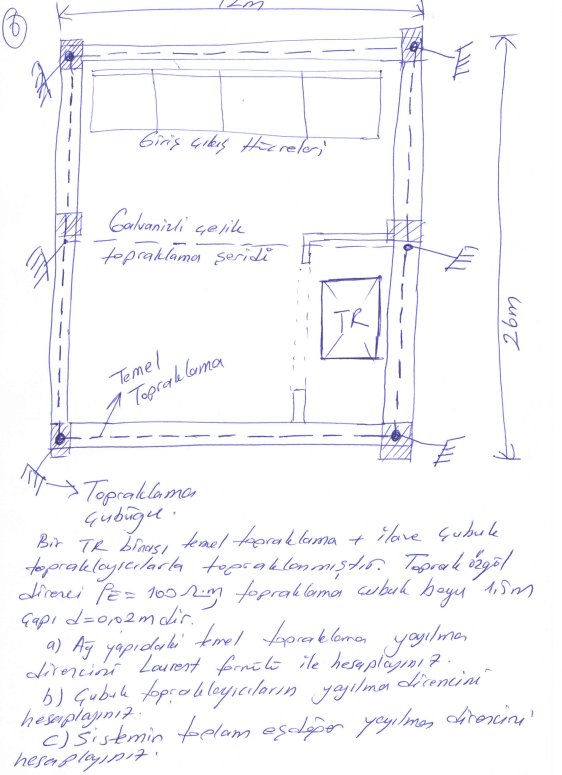 6
12m
Giriş çıkış Hücreleri
Galvanizli çelik
topraklama şeridi
TR
26m
Temel
Topraklama
Topraklama
Çubuğu.
Bir TR binası temel topraklama + ilave çubuk
topraklayıcılarla topraklanmıştır. Toprak özgül
direnci ρE = 100 Ω.m topraklama çubuk boyu 1,5m
çapı d=0,02m dir.
a) Ağ yapıdaki temel topraklama yayılma
direncini Laurent formülü ile hesaplayınız.
b) Çubuk topraklayıcıların yayılma direncini
hesaplayınız.
c) Sistemin toplam eşdeğer yayılma direncini
hesaplayınız.